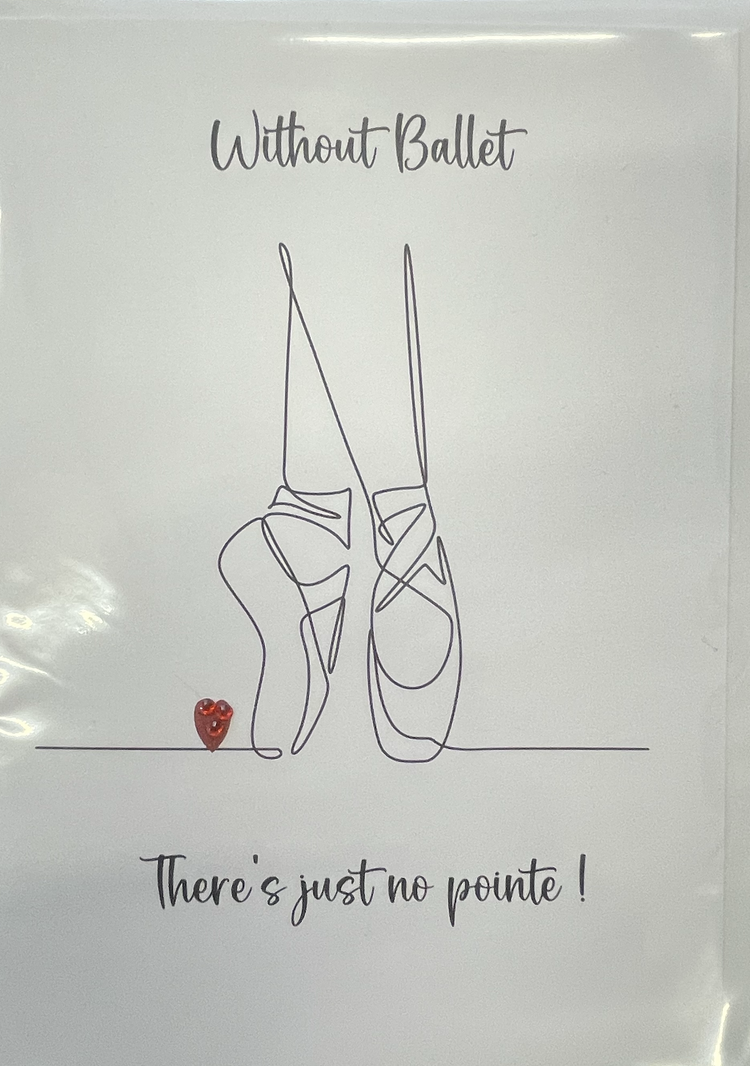 Without Ballet
There's just no pointe !